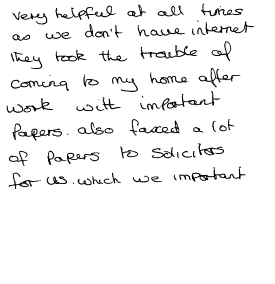 very helpful at all times
as we don't have internet
they took the trouble of
coming to my home after
work with important
papers. also faxed a lot
of papers to solicitors
for us. which we important